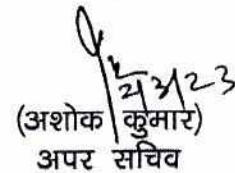 2/3/23
(अशोक कुमार)
अपर सचिव